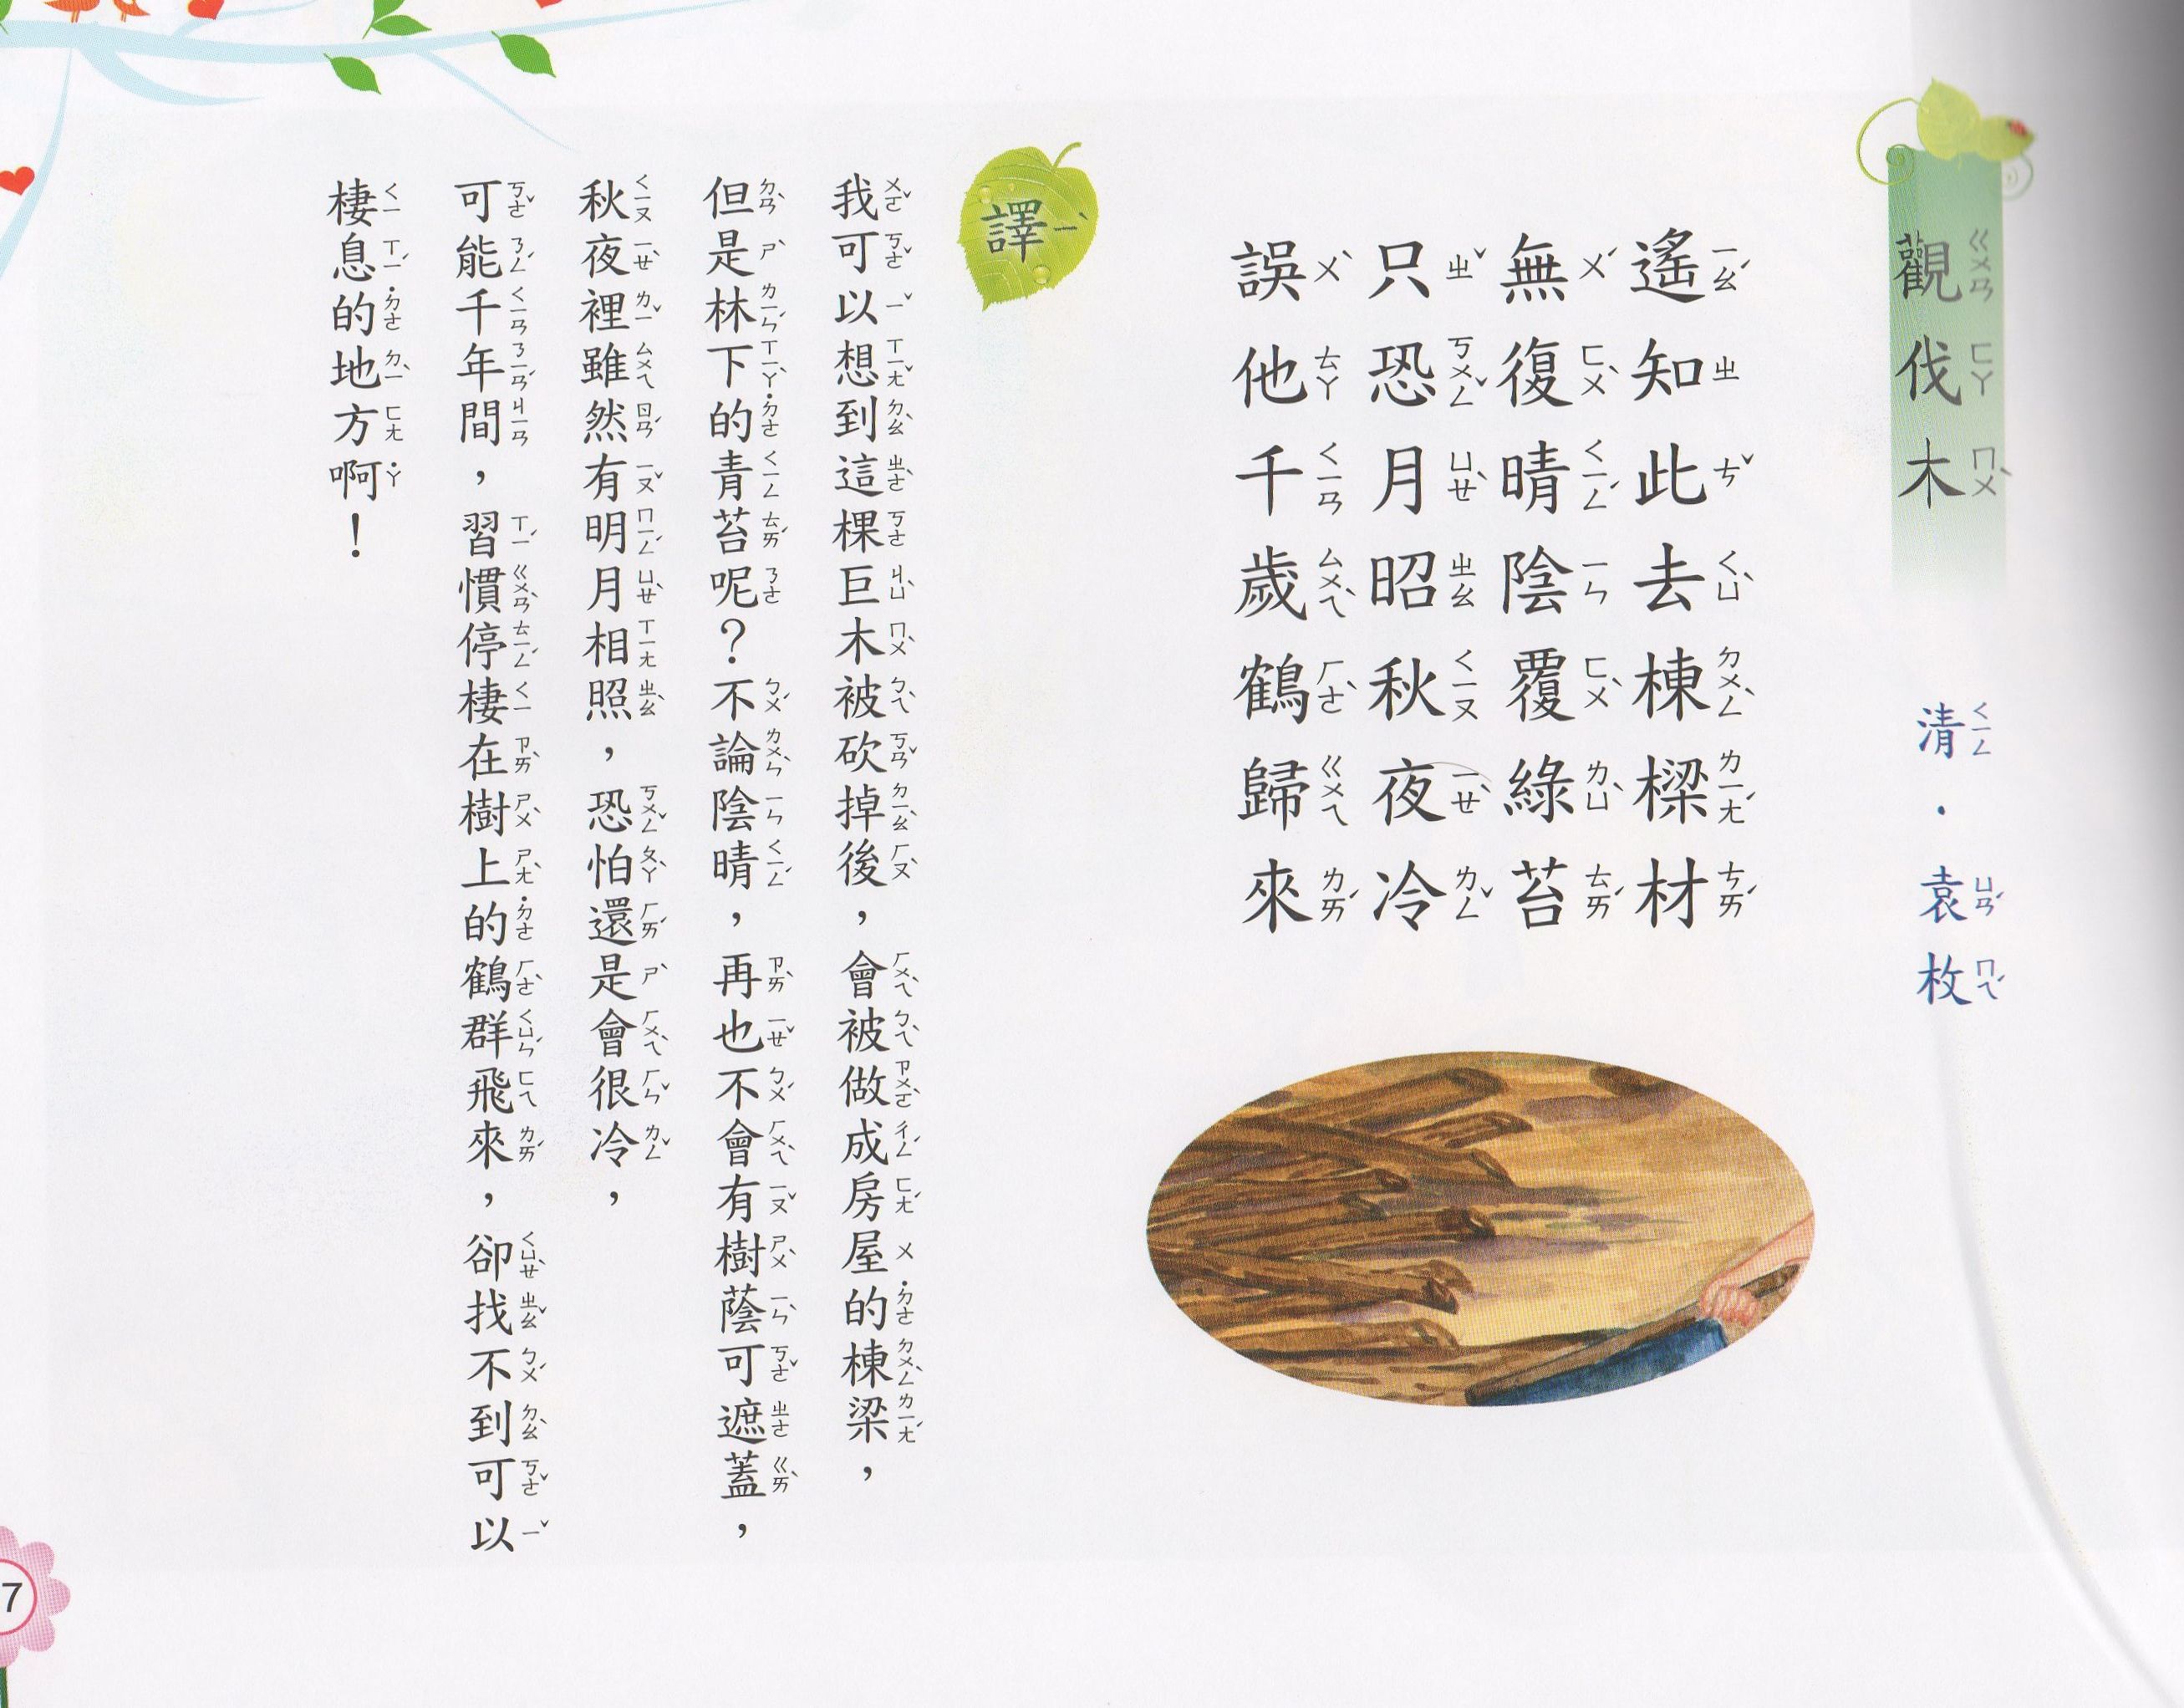 觀伐木
清．袁枚
遙知此去棟樑材
無復晴陰覆綠苔
只恐月昭秋夜冷
誤他千歲鶴歸來
譯
我可以想到這棵巨木被砍掉後，會被做成房屋的棟梁，
但是林下的青苔呢？不論陰晴，再也不會有樹蔭可遮蓋，
秋夜裡雖然有明月相照，恐怕還是會很冷，
可能千年間，習慣停棲在樹上的鶴群飛來，卻找不到可以
棲息的地方啊！
7